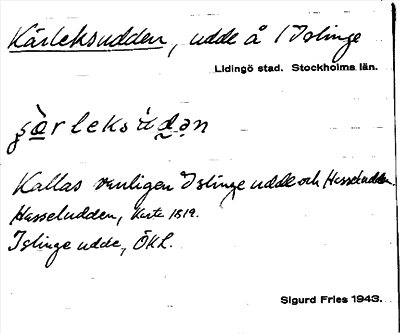 Kärleksudden, udde å Islinge
Lidingö stad. Stockholms län.
Kallas vanligen Islinge udde och Hasseludden.
Hasseludden, Karta 1819.
Islinge udde, ÖKL.
Sigurd Fries 1943.